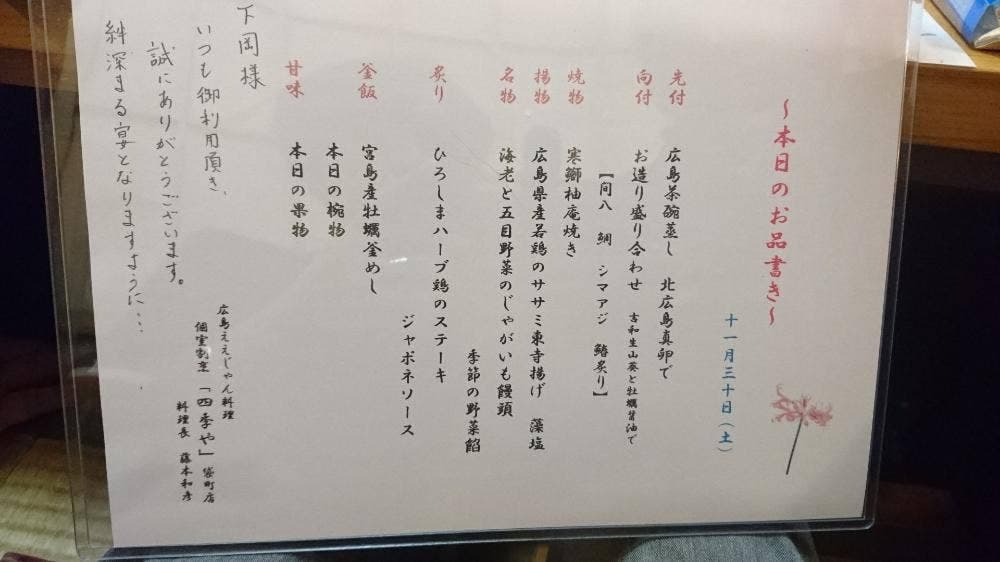 ～本日のお品書き～
十一月三十日（土）
先付 広島茶碗蒸し 北広島真卵で
向付 お造り盛り合わせ 古和生山葵と牡蠣醤油で
【間八 鯛 シマアジ 鰆炙り】
焼物 寒鰤柚庵焼き
揚物 広島県産若鶏のササミ東寺揚げ 藻塩
名物 海老と五目野菜のじゃがいも饅頭
季節の野菜餡
炙り ひろしまハーブ鶏のステーキ
ジャポネソース
釜飯 宮島産牡蠣釜めし
本日の椀物
甘味 本日の果物
下岡様
いつも御利用頂き、
誠にありがとうございます。
絆深まる宴となりますように・・・
広島ええじゃん料理
個室割烹「四季や」袋町店
料理長 藤本和彦